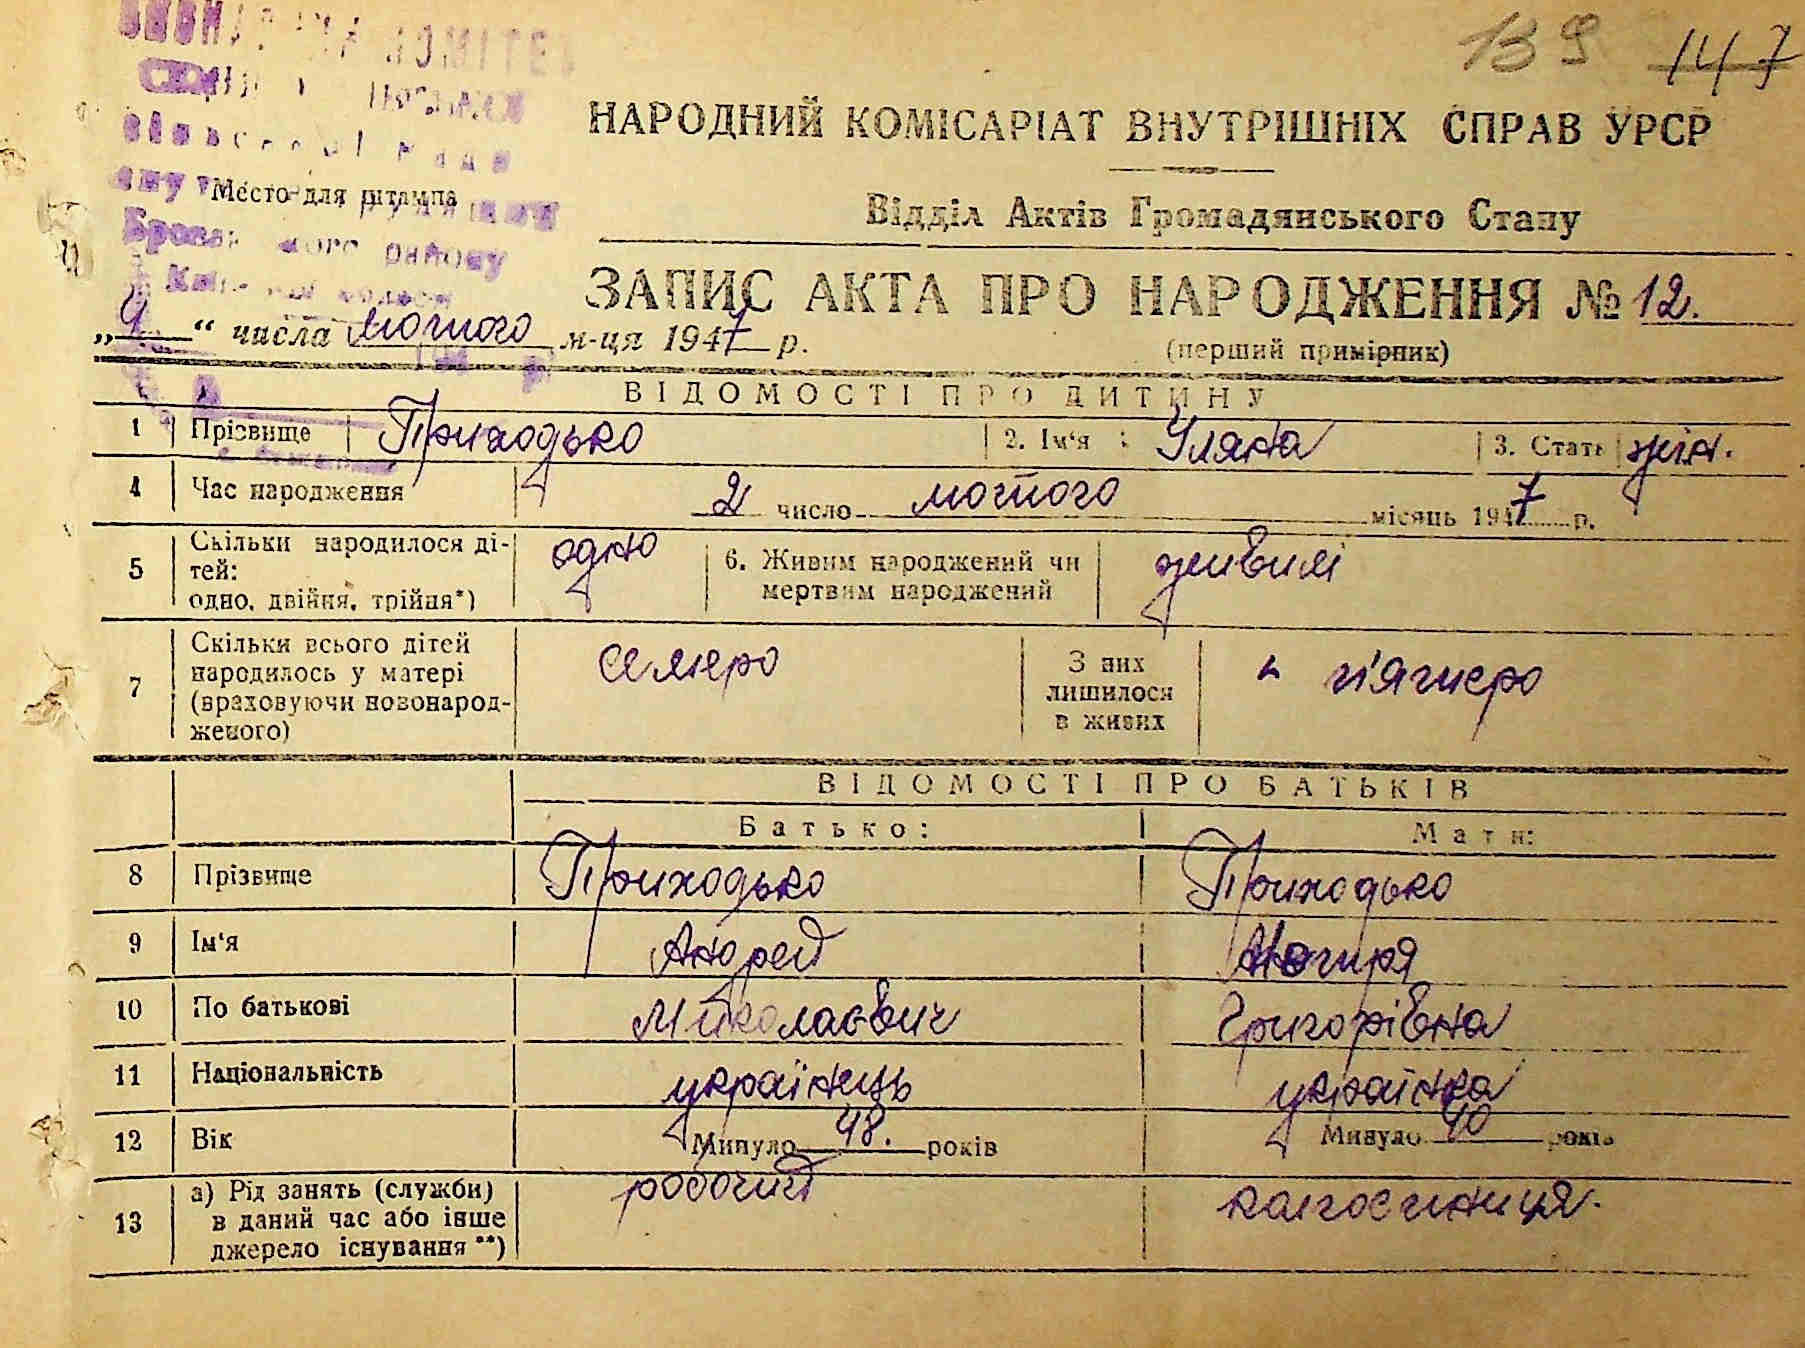 139 147
НАРОДНИЙ КОМІСАРІАТ ВНУТРІШНІХ СПРАВ УРСР
Место для штампа
району
Відділ Актів Громадянського Стану
ЗАПИС АКТА ПРО НАРОДЖЕННЯ № 12.
„9“ числа лютого м-ця 1947 р.
(перший примірник)
ВІДОМОСТІ ПРО ДИТИНУ
1 Прізвище Приходько 2. Ім'я : Уляна 3. Стать жін.
4 Час народження 2 число лютого місяць 1947 р.
5 Скільки народилося ді-
тей:
одно, двійня, трійня*) одно 6. Живим народжений чи
мертвим народжений живим
7 Скільки всього дітей
народилось у матері
(враховуючи новонарод-
женого) семеро З них
лишилося
в живих п'ятеро
ВІДОМОСТІ ПРО БАТЬКІВ
Батько: Мати:
8 Прізвище Приходько Приходько
9 Ім'я Андрей
10 По батькові Миколаєвич Григорівна
11 Національність українець українка
12 Вік Минуло 48. років Минуло 40 років
13 а) Рід занять (служби)
в даний час або інше
джерело існування **) робочий колгоспниця.